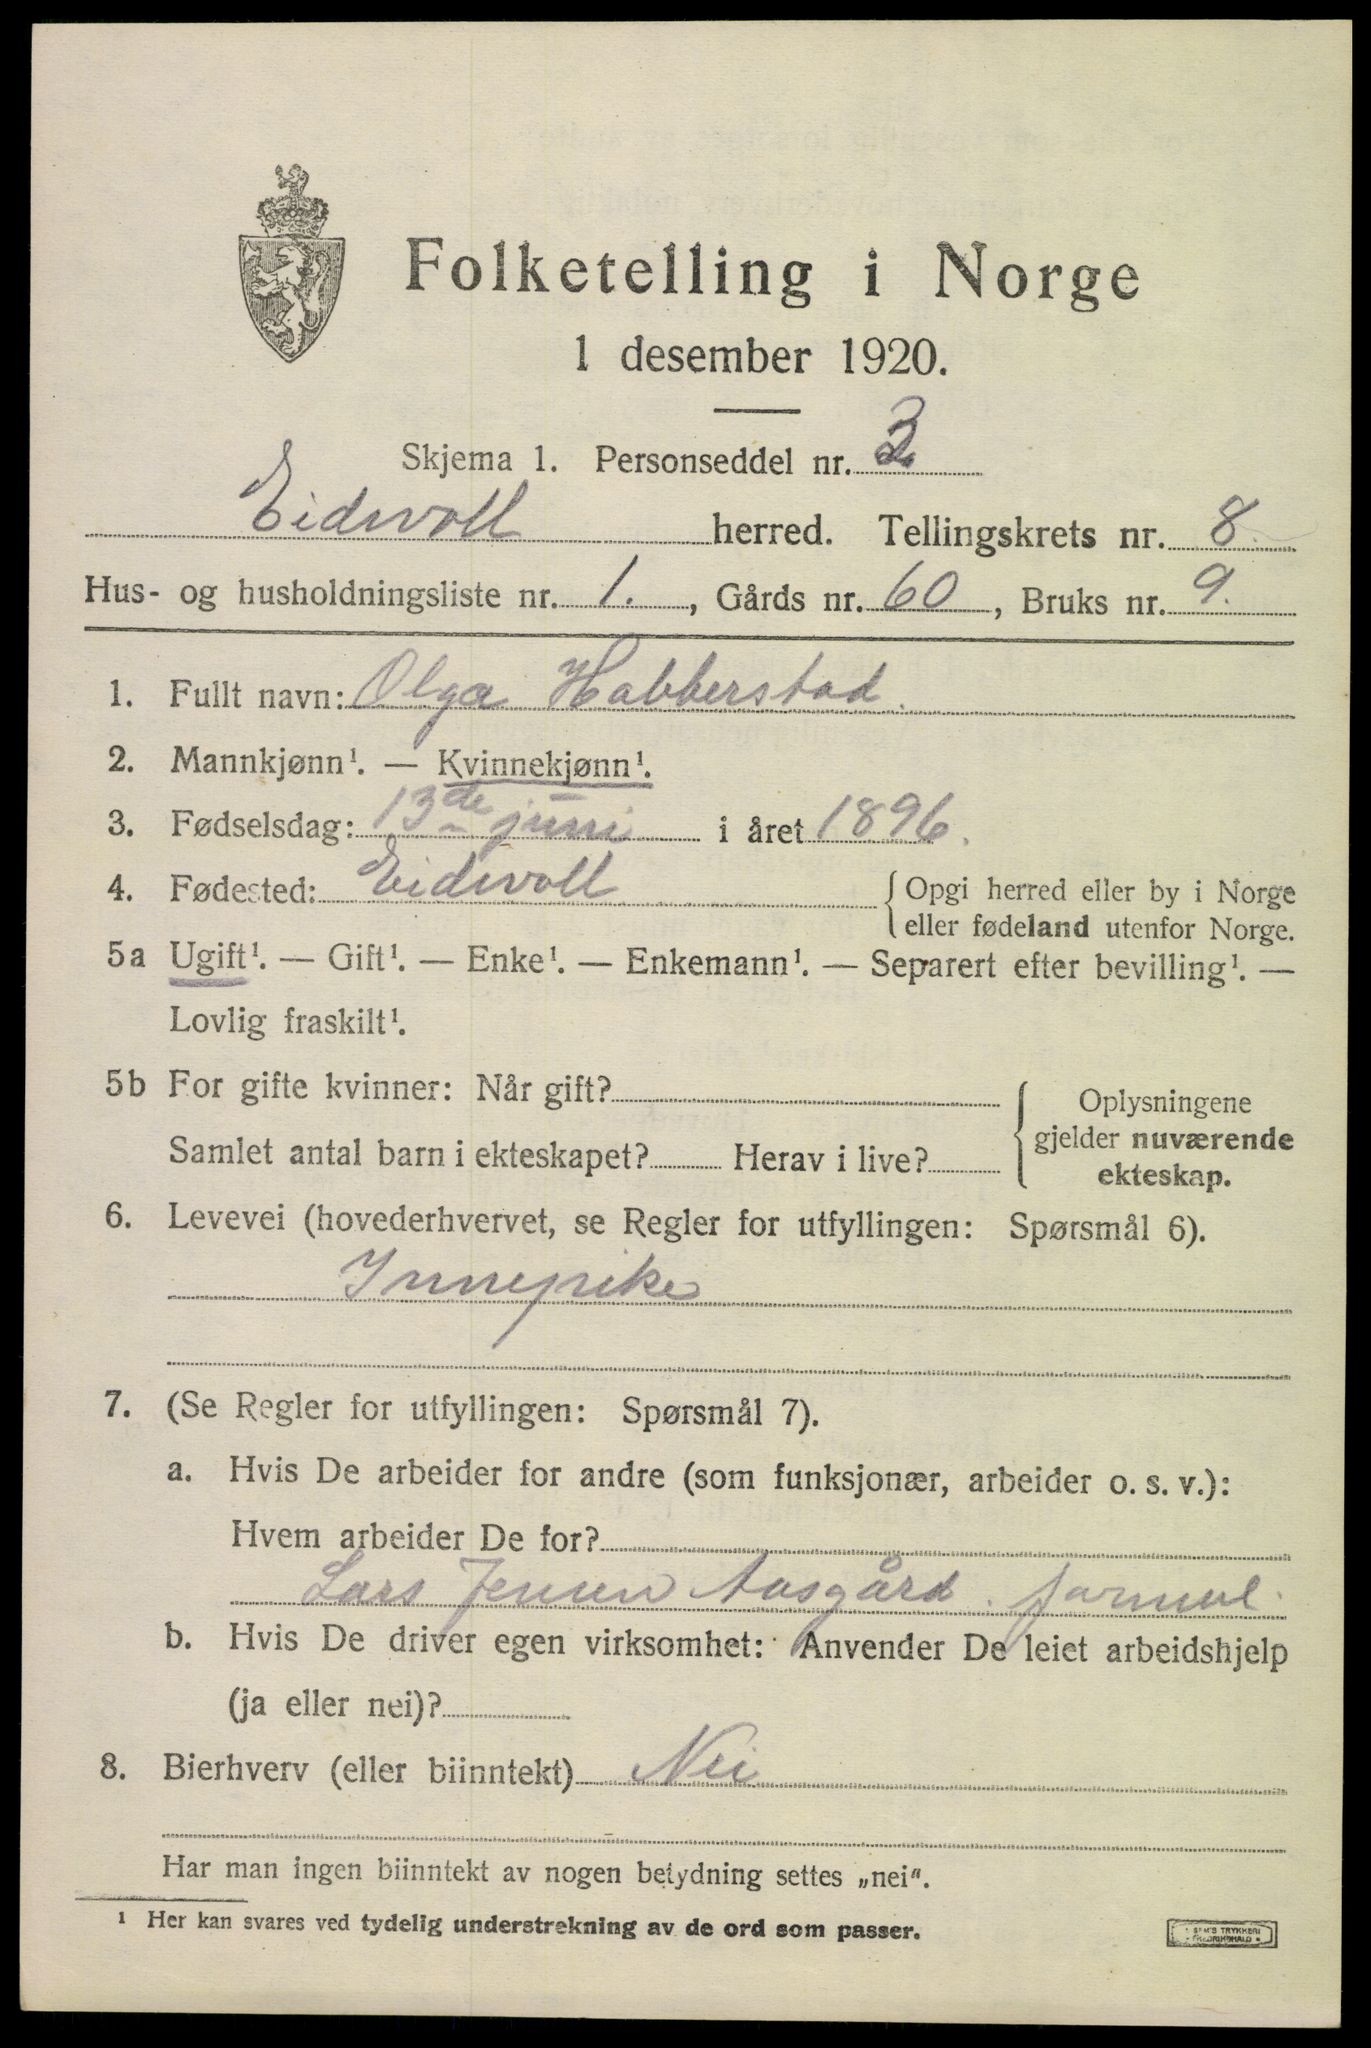 Folketelling i Norge
1 desember 1920.
Skjema 1. Personseddel nr. 3
Eidsvoll herred. Tellingskrets nr. 8.
Hus- og husholdningsliste nr. 1., Gårds nr. 60, Bruks nr. 9.
1. Fullt navn: Olga Habberstad.
2. Mannkjønn¹. — Kvinnekjønn¹.
3. Fødselsdag: 13de juni i året 1896.
4. Fødested: Eidsvoll { Opgi herred eller by i Norge
eller fødeland utenfor Norge.
5a Ugift¹. — Gift¹. — Enke¹. — Enkemann¹. — Separert efter bevilling¹. —
Lovlig fraskilt¹.
5b For gifte kvinner: Når gift?
Samlet antal barn i ekteskapet? Herav i live?
{ Oplysningene
gjelder nuværende
ekteskap.
6. Levevei (hovederhvervet, se Regler for utfyllingen: Spørsmål 6).
Innepike
7. (Se Regler for utfyllingen: Spørsmål 7).
a. Hvis De arbeider for andre (som funksjonær, arbeider o. s. v.):
Hvem arbeider De for?
Lars Jensen Aasgård.
b. Hvis De driver egen virksomhet: Anvender De leiet arbeidshjelp
(ja eller nei)?
8. Bierhverv (eller biinntekt) Nei
Har man ingen biinntekt av nogen betydning settes „nei".
¹ Her kan svares ved tydelig understrekning av de ord som passer.
TRYKKERI
FREDRIKSHALD